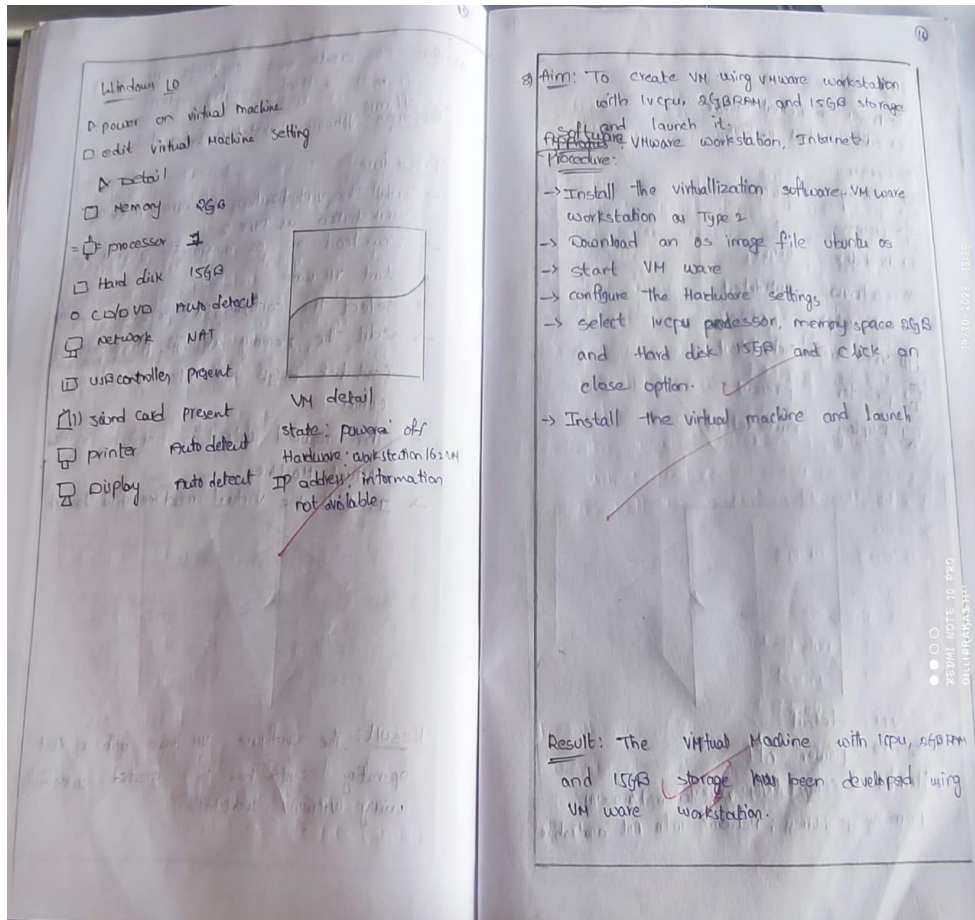 Windows 10
power on virtual machine
edit virtual Machine setting
Detail
Memory 2GB
processor 1
Hard disk 15GB
CD/DVD Auto detect
Network NAT
USB controller present
sound card present
printer Auto detect
Display Auto detect
VM detail
state: powered off
Hardware: workstation 16.2 VM
IP address: information
not available
16
8) Aim: To create VM using VMware workstation
with 1vcpu, 2GB RAM, and 15GB storage
and launch it.
Software VMware workstation, Internet.
Procedure:
→ Install the virtuallization software, VM ware
workstation as Type 2
→ Download an os image file ubuntu os
→ start VM ware
→ configure the Hardware settings
→ select 1vcpu processor, memory space 2GB
and Hard disk 15GB and click on
close option.
→ Install the virtual machine and launch
Result: The Virtual Machine with 1cpu, 2GB RAM
and 15GB storage has been developed using
VM ware workstation.
REDMI NOTE 10 PRO